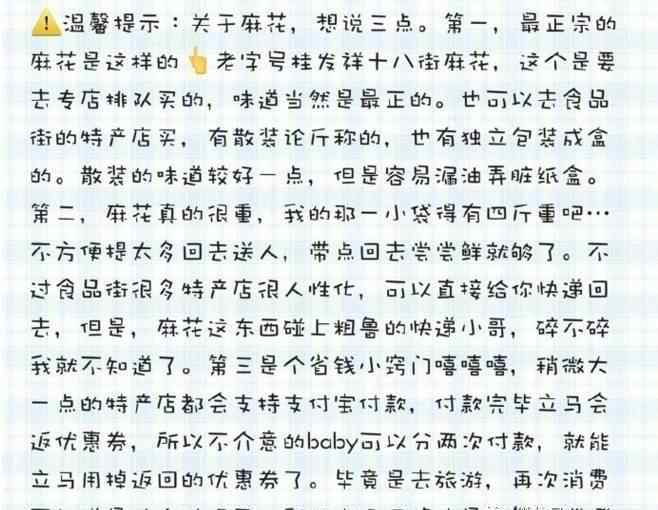 ⚠️温馨提示：关于麻花，想说三点。第一，最正宗的
麻花是这样的👆老字号桂发祥十八街麻花，这个是要
去专店排队买的，味道当然是最正的。也可以去食品
街的特产店买，有散装论斤称的，也有独立包装成盒
的。散装的味道较好一点，但是容易漏油弄脏纸盒。
第二，麻花真的很重，我的那一小袋得有四斤重吧…
不方便提太多回去送人，带点回去尝尝鲜就够了。不
过食品街很多特产店很人性化，可以直接给你快递回
去，但是，麻花这东西碰上粗鲁的快递小哥，碎不碎
我就不知道了。第三是个省钱小窍门嘻嘻嘻，稍微大
一点的特产店都会支持支付宝付款，付款完毕立马会
返优惠券，所以不介意的baby可以分两次付款，就能
立马用掉返回的优惠券了。毕竟是去旅游，再次消费